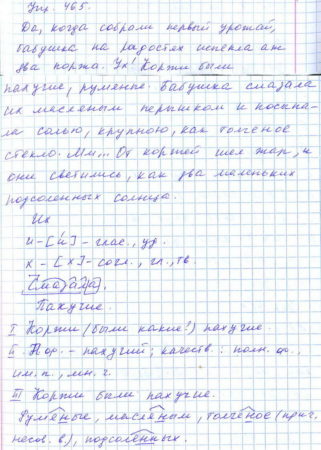 Упр. 465.
Да, когда собрали первый урожай,
бабушка на радостях испекла аж
два коржа. Ух! Коржи были
пахучие, румяные. Бабушка смазала
их масляным перышком и посыпа-
ла солью, крупною, как толченое
стекло. Мм... От коржей шел жар, и
они светились, как два маленьких
подсоленных солнца.
Их
и - [и́] - глас., уд.
х - [х] - согл., гл., тв.
Смазала.
Пахучие.
I Коржи (были какие?) пахучие.
II Н.ф. - пахучий; качеств.: полн. ф.,
им. п., мн. ч.
III Коржи были пахучие.
Румяные, масляным, толченое (прич.
несов. в), подсоленных.